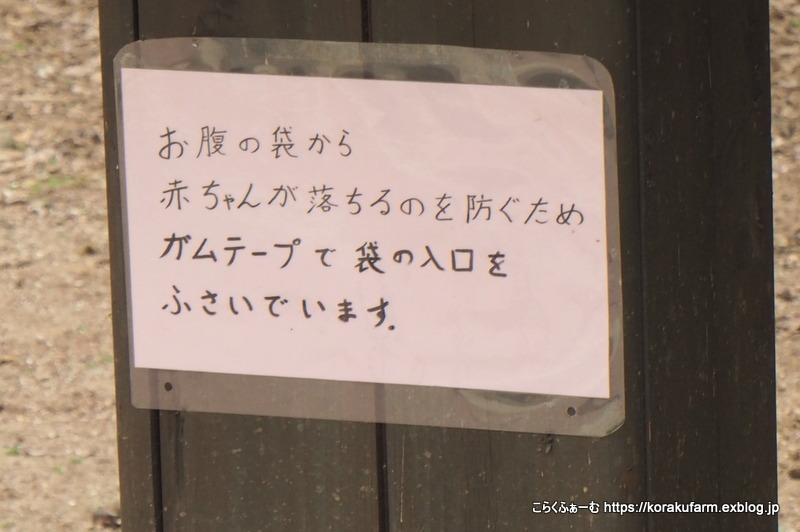 お腹の袋から
赤ちゃんが落ちるのを防ぐため
ガムテープで袋の入口を
ふさいでいます.
こらくふぁーむ https://korakufarm.exblog.jp